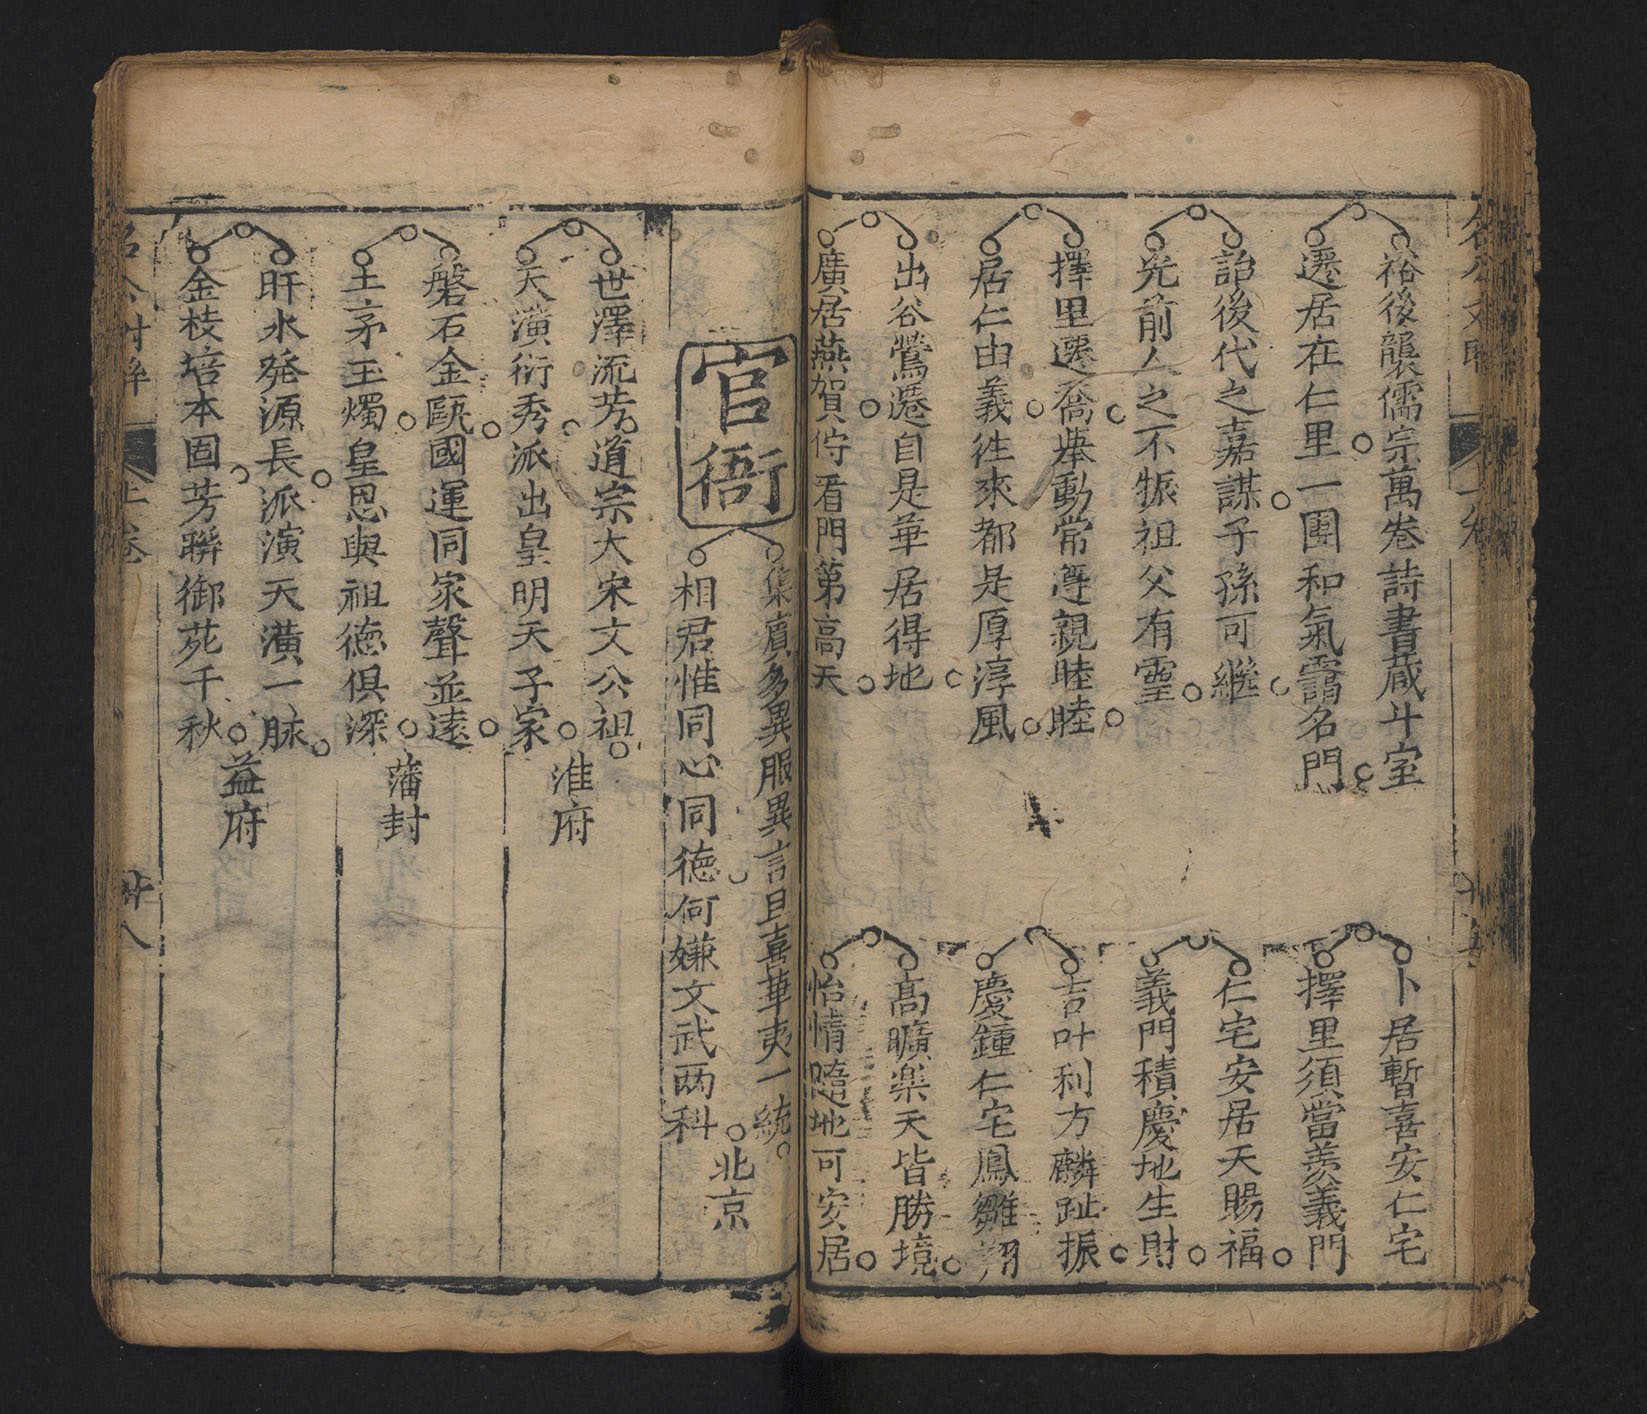 裕後襲儒宗萬卷詩書藏斗室
遷居在仁里一團和氣靄名門
詒後代之嘉謀子孫可繼
光前人之不振祖父有靈
擇里遷喬舉動常遵親睦睦
居仁由義徃來都是厚淳風
出谷鶯遷自是華居得地
廣居燕賀佇看門第高天
卜居暫喜安仁宅
擇里須當羨義門
仁宅安居天賜福
義門積慶地生財
吉叶利方麟趾振
慶鍾仁宅鳳雛翔
高曠樂天皆勝境
怡情隨地可安居
官衙
集賔多異服異言且喜華夷一統
相君惟同心同德何嫌文武两科
北京
世澤流芳道宗大宋文公祖
天潢衍秀派出皇明天子家
淮府
磐石金甌國運同家聲並遠
土茅玉燭皇恩與祖德俱深
藩封
盱水發源長派演天潢一脉
金枝培本固芳聯御苑千秋
益府
上卷
廿八